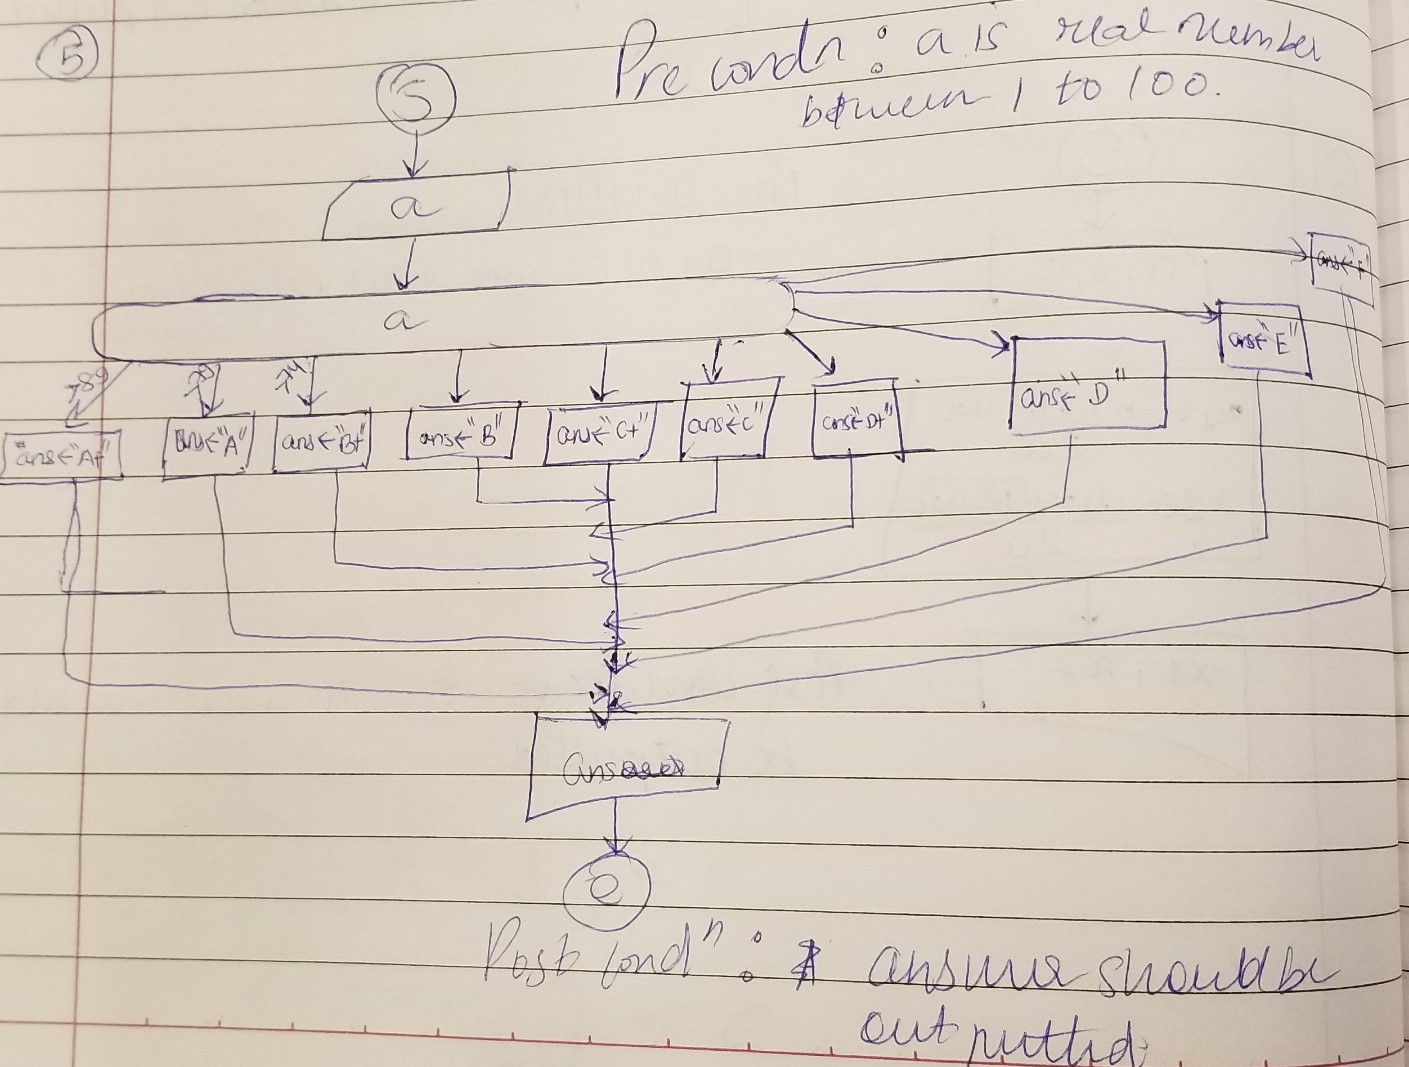 5
Pre condn : a is real number
between 1 to 100.
S
a
a
>89
ans←"A+"
ans←"A"
ans←"B+"
ans←"B"
ans←"C+"
ans←"C"
ans←"D+"
ans←"D"
ans←"E"
ans←"F"
ans
e
Post condⁿ : answer should be
out putted